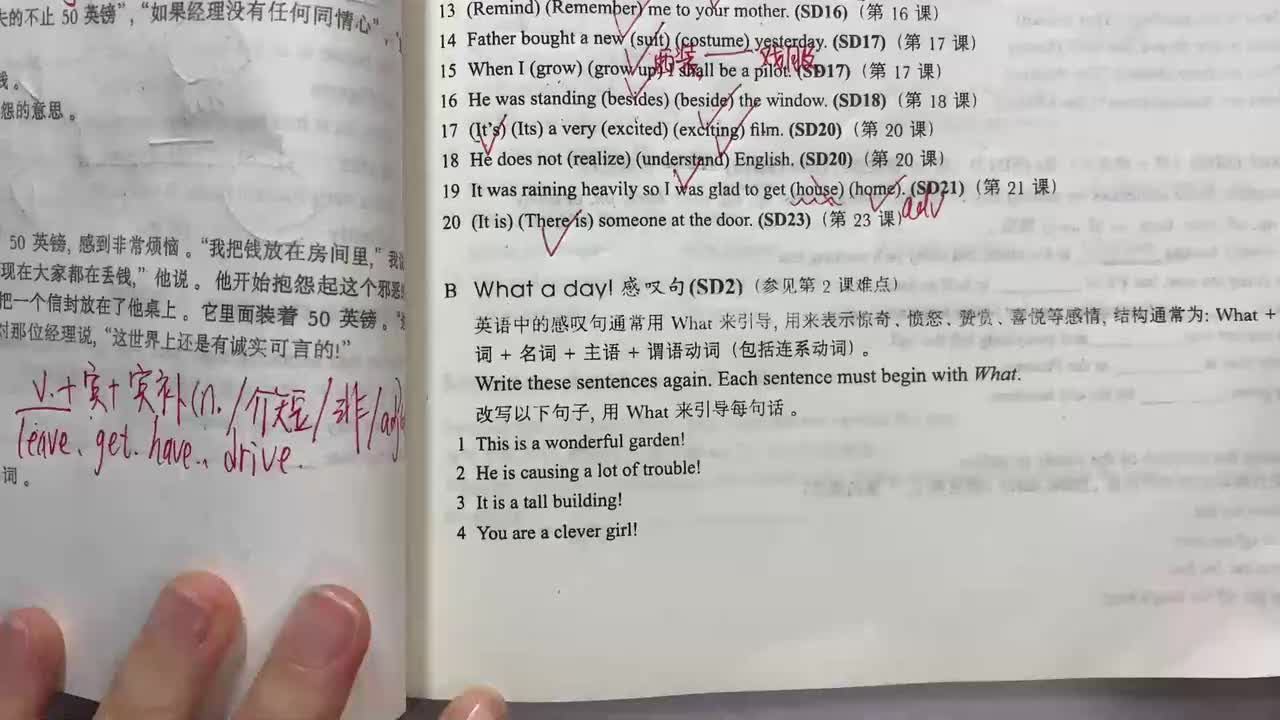 失的不止 50 英镑”, “如果经理没有任何同情心”,
钱。
怨的意思。
50 英镑, 感到非常烦恼。“我把钱放在房间里,”
现在大家都在丢钱,” 他说。他开始抱怨起这个邪恶
把一个信封放在了他桌上。它里面装着 50 英镑。
对那位经理说, “这世界上还是有诚实可言的!”
v. + 宾 + 宾补 (n. / 介短 / 非 / adj
leave、get. have., drive.
词。
13 (Remind) (Remember) me to your mother. (SD16) (第 16 课)
14 Father bought a new (suit) (costume) yesterday. (SD17) (第 17 课)
西装 —— 戏服
15 When I (grow) (grow up) I shall be a pilot. (SD17) (第 17 课)
16 He was standing (besides) (beside) the window. (SD18) (第 18 课)
17 (It's) (Its) a very (excited) (exciting) film. (SD20) (第 20 课)
18 He does not (realize) (understand) English. (SD20) (第 20 课)
19 It was raining heavily so I was glad to get (house) (home). (SD21) (第 21 课)
adv
20 (It is) (There is) someone at the door. (SD23) (第 23 课)
B What a day! 感叹句 (SD2) (参见第 2 课难点)
英语中的感叹句通常用 What 来引导, 用来表示惊奇、愤怒、赞赏、喜悦等感情, 结构通常为: What +
词 + 名词 + 主语 + 谓语动词 (包括连系动词)。
Write these sentences again. Each sentence must begin with What.
改写以下句子, 用 What 来引导每句话。
1 This is a wonderful garden!
2 He is causing a lot of trouble!
3 It is a tall building!
4 You are a clever girl!